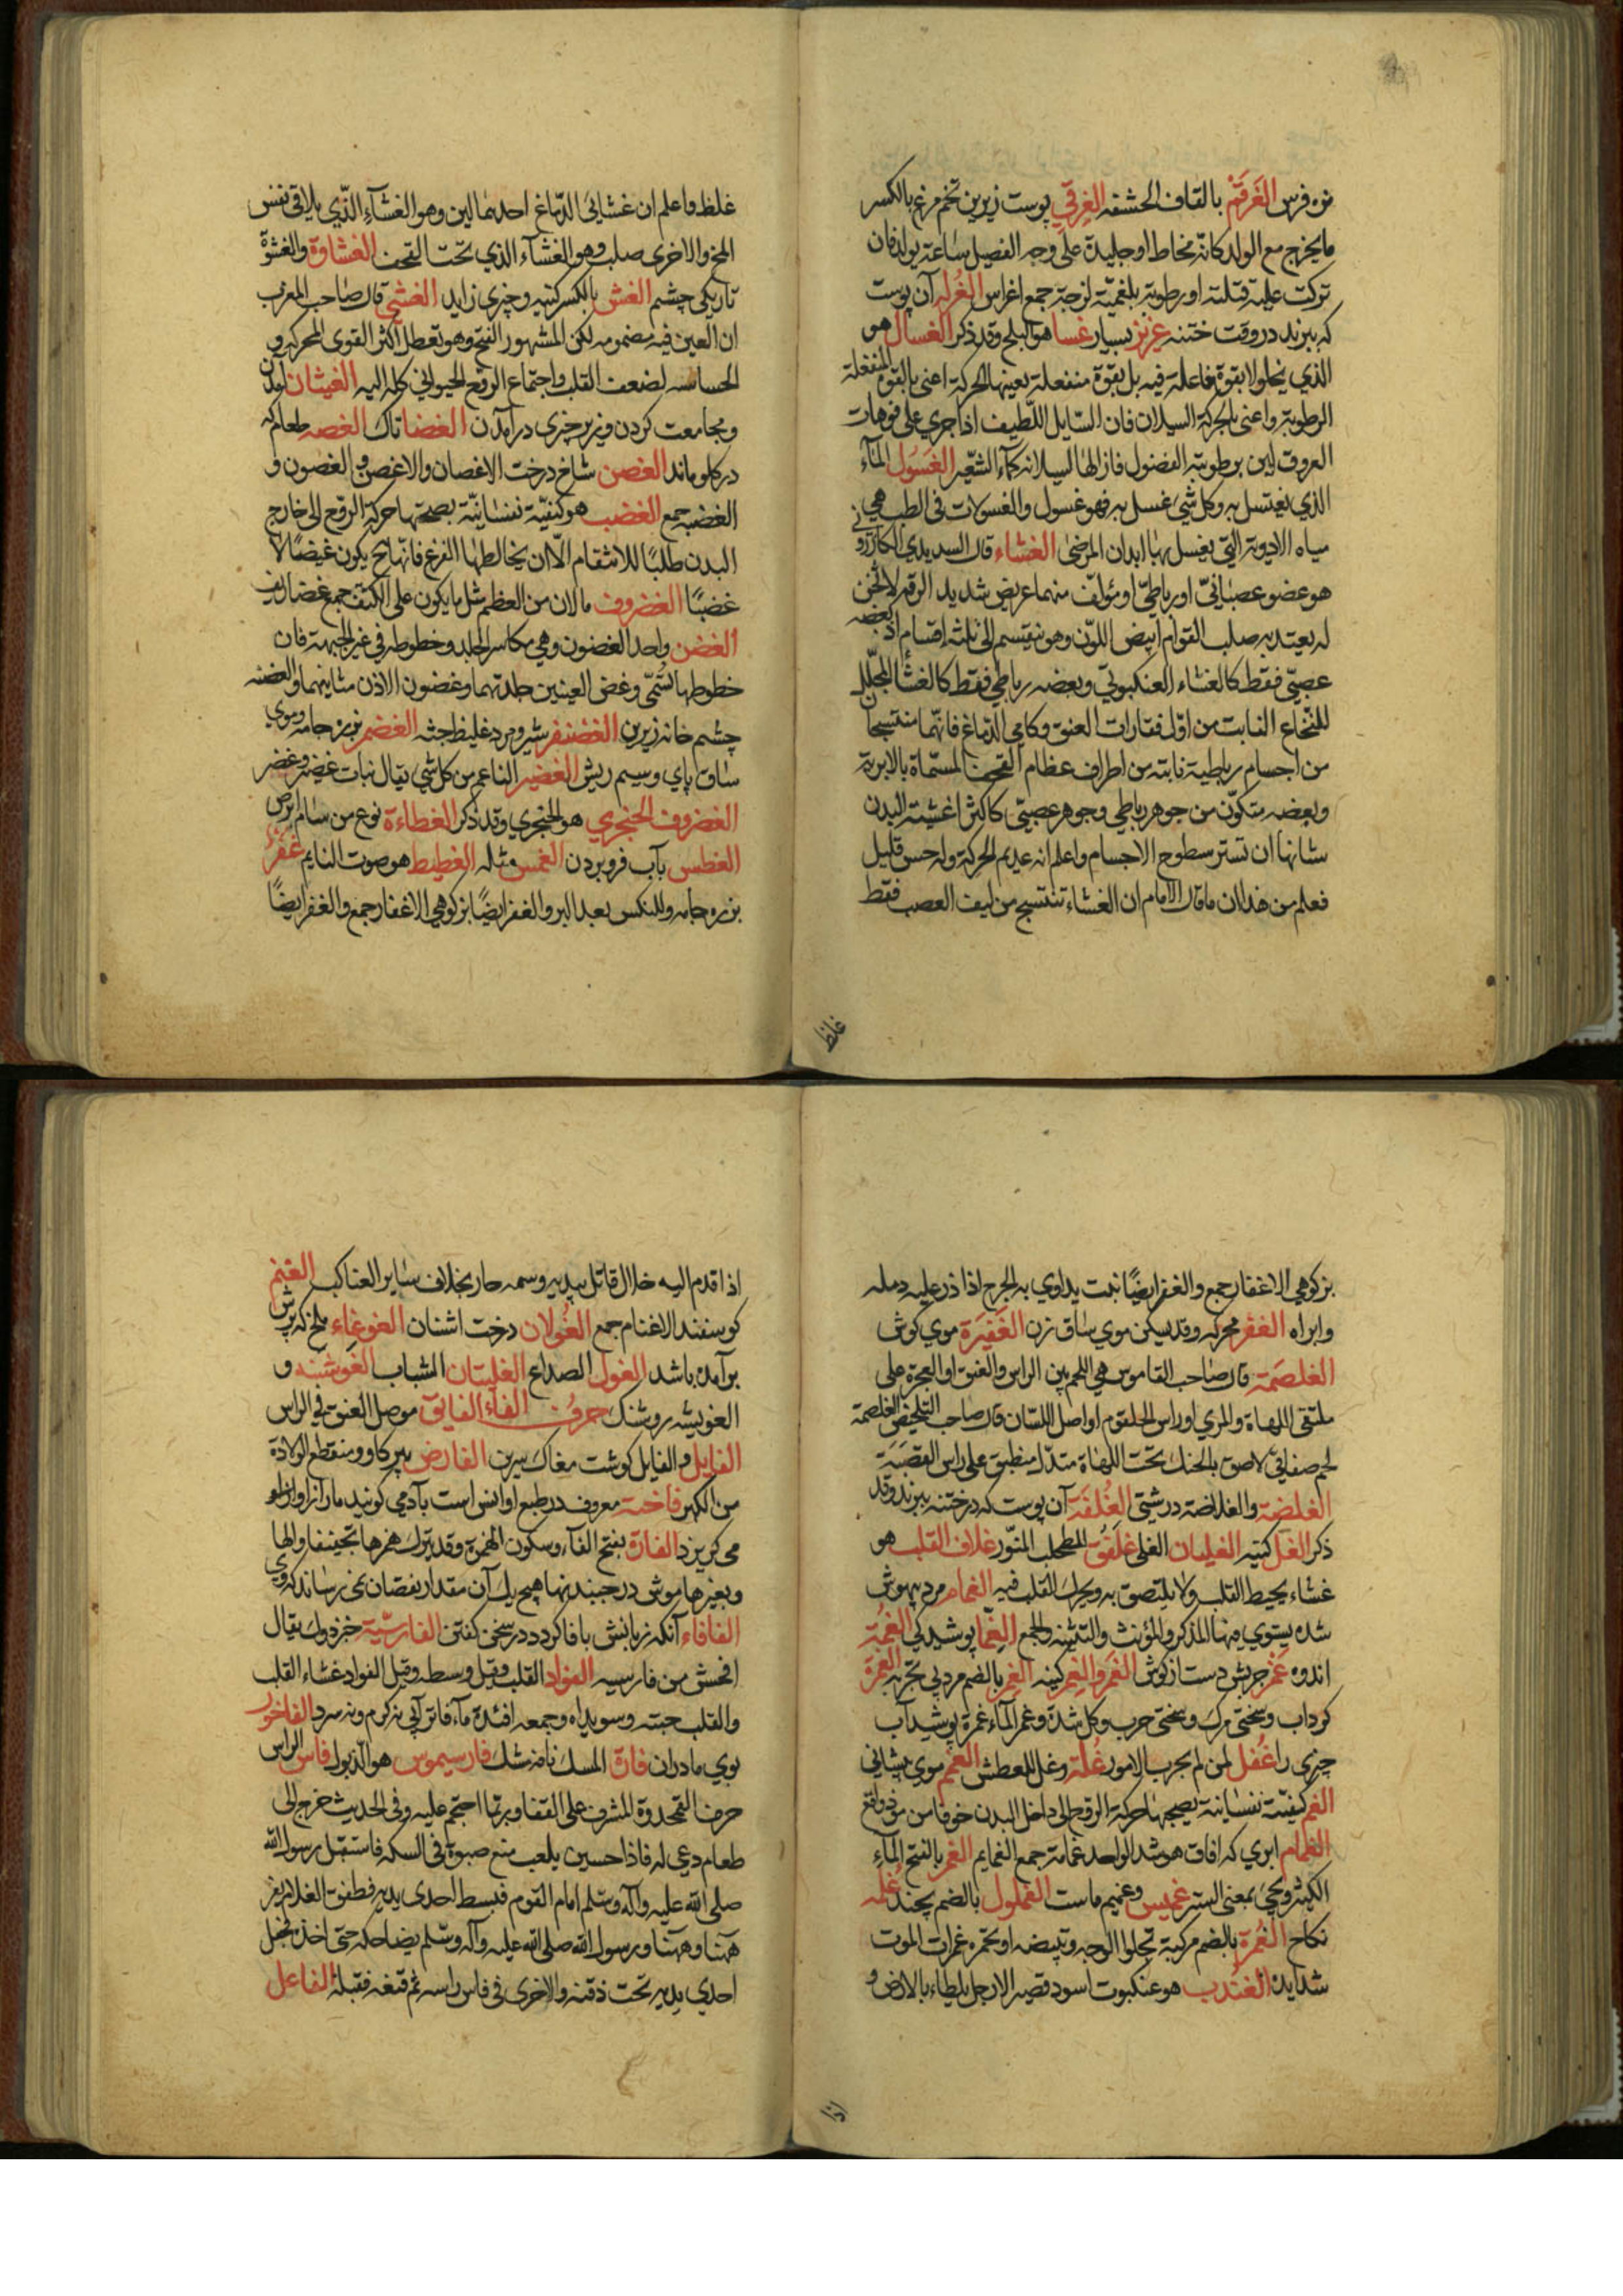 نوه فرس الغَرَقَمْ بالقاف الحشفه الغِرقي پوست زيرين تخم مرغ بالكسر
ما يخرج مع الولد كانّه مخاط او جليدة على وجه الفصيل ساعة يولد فان
تركت عليه قتلته او رطوبة بلغميّة لزجة جمع اغراس الغُرلَه آن پوست
كه ببرند در وقت ختنه غزيز بسيار غسا هو البلح وقد ذكر الغسال هو
الذي يجلو لا بقوة فاعلة فيه بل بقوّة منفعلة يعينها الحركة اعنى بالقوة المنفعلة
الرطوبة واعنى بالحركة السيلان فان السّايل اللّطيف اذا جرى على فوهات
العروق لين برطوبته الفضول فازالها لسيلانه كماء الشّعير الغَسُول المآء
الذي يغتسل به وكل شئ غسل به فهو غسول والغسولات فى الطب هي
مياه الادوية التي يغسل بها ابدان المرضى الغشاء قال السديدي الكازروني
هو عضو عصبانيّ او رباطيّ او مؤلف منهما عريض شديد الرقه لا ثخن
له يعتد به صلب القوام ابيض اللوّن وهو ينقسم الى ثلثه اقسام اذ بعضه
عصبيّ فقط كالغشاء العنكبوتي وبعضه رباطي فقط كالغشا المجلّل
للنخاع النابت من اوّل فقارات العنق وكامي الدّماغ فانّهما منتسجان
من اجسام رباطية نابته من اطراف عظام القحف المسمّاة بالابرية
وبعضه متكوّن من جوهر رباطي وجوهر عصبيّ كاكثر اغشيته البدن
شانها ان تستر سطوح الاجسام واعلم انه عديم الحركة وله حس قليل
فعلم من هذا ان ما قال الامام ان الغشاء تنتسج من ليف العصب فقط
غلظ
غلظ واعلم ان غشائى الدّماغ احدهما لين وهو الغشآء الذّي يلاقى نفس
المخ والاخرى صلب وهو الغشآء الذي تحت القحف الغشاوة والغشوة
تاريكى چشم الغش بالكسر كنيه وچيزى زايد الغشي قال صاحب المغرب
ان الغين فيه مضمومه لكن المشهور الفتح وهو تعطل اكثر القوى المحركه و
الحساسه لضعف القلب واجتماع الروح الحيواني كله اليه الغيثان آمدن
ومجامعت كردن وزير چيزى درآمدن الغضا تاك الغصه طعام كه
در كلو ماند الغصن شاخ درخت الاغصان والاغصن والغصون و
الغضبه جمع الغضب هو كيفيّة نفسانيّة يصحبها حركة الروح الى خارج
البدن طلبًا للانتقام الّا ان يخالطها الفزع فانّها ح يكون غيضًا لا
غضبًا الغضروف ما لان من العظم مثل ما يكون على الكتف جمع غضاريف
الغضن واحد الغضون وهي مكاسر الجلد وخطوطه في غير الجبهة فان
خطوطها تسّمى وغض العينين جلدتهما وغضون الاذن مثانيهما والغضنه
چشم خانه زيرين الغضنفر شير ومرد غليظ جثه الغضمر بزر جامه وموي
ساق پاي وسيم ريش الغضير الناعم من كل شي يقال نبات غضير وغضر
الغضروف الحنجري هو الحنجري وقد ذكر الغطاءة نوع من سام ابرص
الغطس بآب فرو بردن الغمس مثله الغطيط هو صوت النايم غَفْر
بزره جامه وللنكس بعد البر والغفر ايضًا بز كوهي الاغفار جمع والغفر ايضًا
بز كوهي الاغفار جمع والغفر ايضًا نبت يداوي به الجرح اذا ذر عليه دمله
وابراه الغفر محركه وقد يسكن موي ساق زن الغَفِيَرة موي كوش
الغلصَمة قال صاحب القاموس هي اللحم بين الراس والعنق او العجرة على
ملتقى اللهاة والمري او راس الحلقوم او اصل اللسّان قال صاحب التلخيص الغلصمة
لحم صفاقيّ لاصق بالحنك تحت اللهاة متدّلٍ منطبق على راس القصَبَة
الغلضة والغلاضة درشتي الغُلفَة آن پوست كه در ختنه ببرند وقد
ذكر الغل كنيه الغليان الغلى غلَفُق للطحلب المنّور غلاف القلب هو
غشاء يحيط القلب ولا يلتصق به ويحرك القلب فيه الغمام مرد بيهوش
شده يستوي فيها المذكر والمؤنث والتثنيه والجمع الغمّا پوشيدكي الغمُة
اندوه غمز جربش دست از كوش الغَمَر والغمر كينه الغمر بالضم مرد بي تجربه الغمرة
كرداب وسختي مرك وسختي حرب وكل شدة وغمر المآء غمرة پوشيد آب
چيزى را غُفل لمن لم يجرب الامور غُلّة وغل للعطش الغم موي پيشاني
الغم كيفيّة نفسانيّة يصحبها حركة الروح الى داخل البدن خوفا من موذ واقع
الغمام ابري كه افاق هو شد الواحد غمامة جمع الغمايم الغمر بالفتح المآء
الكثير ويجئ بمعنى الستر غميس وغميم ماست الغملول بالضم پچند غُلمه
نكاح الغُمرة بالضم مركبة تجلوا الوجه وتبيضه او تحمره غمرات الموت
شدايده الغُندب هو عنكبوت اسود قصير الارجل يلطاء بالارض و
اذا
اذا قدم اليه خلال قاتل بيديه وسمه حار بخلاف ساير العناكب الغنم
كوسفند الاغنام جمع الغَولان درخت اشنان الغوغاء ملخ كه پرش
برآمده باشد الغول الصداع الغليتان الشباب الغَوشنه و
الغويشه روشنك حرف الفآء الفايق موصل العنق في الراس
الفايل والفايل كوشت مغاك سرين الفارض پير كاو ومنقطع الولادة
من الكبر فاخته معروف در طبع او انس است بآدمي كويند مار از آواز او
مى كريزد الفارة بفتح الفآء وسكون الهمزة وقد يترك همزها تخفيفا والها
وبغيرها موش در جبيند ينها هيچ يك آن مقدار نقصان نمى رساند كه وي
الفافاء آنكه زبانش با فا كردد در سخن كفتن الفارسيّة خبزدوك يقال
افحش من فارسيه الفواد القلب وقيل وسطه وقيل الفواد غشاء القلب
والقلب حبته وسويداه وجمعه افئدة مآء فاتر آبى نه كرم ونه سرد الفاخور
بوي مادران فارة المسك نافه مشك فارسيموس هو الذّبول فاس الراس
حرف القمحدوة المشرف على القفا وربما احتجم عليه وفي الحديث خرج الى
طعام دعى له فاذا حسين يلعب مع صبوة فى السكه فاستقبل رسول الله
صلى الله عليه وآله وسلم امام القوم فبسط احدى يديه فطفق الغلام يفر
ههنا وههنا ورسول الله صلى الله عليه وآله وسلم يضاحكه حتى اخذه فجعل
احدي يديه تحت ذقنه والاخرى فى فاس راسه ثم قنعه فقبله الفاعل